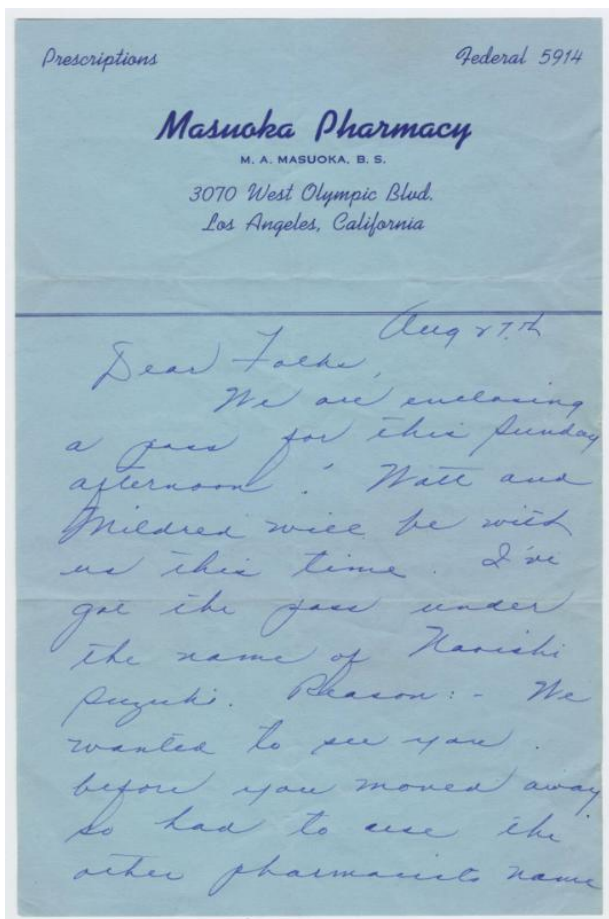 Prescriptions
Federal 5914
Masuoka Pharmacy
M. A. MASUOKA, B. S.
3070 West Olympic Blvd.
Los Angeles, California
Aug 27.th
Dear Folks,
We are enclosing
a pass for this Sunday
afternoon. Watt and
Mildred will be with
us this time. I've
got the pass under
the name of
Suzuki. Reason:- We
wanted to see you
before you moved away
so had to use the
other pharmacists name